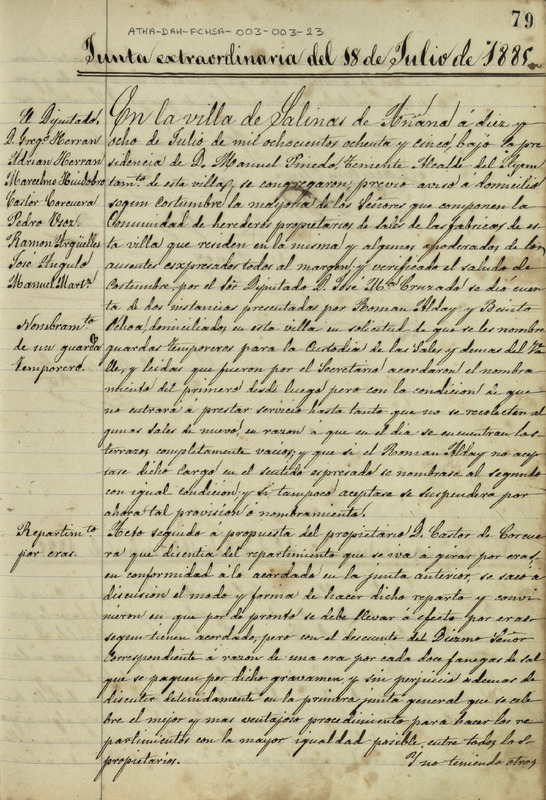 79
ATHA-DAH-FCHSA-003-003-23
Junta extraordinaria del 18 de Julio de 1885.
El Diputado,
D. Greg.º Herran
Adrian Herran
Marcelino Huidobro
Castor Corcuera
Pedro Usoz.
Ramon Argüelles
José Angulo
Manuel Mart.z
En la villa de Salinas de Añana á diez y
ocho de Julio de mil ochocientos ochenta y cinco, bajo la pre
sidencia de D. Manuel Pinedo, Teniente Alcalde del Ayun
tam.to de esta villa, se congregaron, previo aviso á domicilio
segun costumbre la mayoria de los Señores que componen la
Comunidad de herederos propietarios de sales de las fabricas de es
ta villa que residen en la misma y algunos apoderados de los
ausentes esxpresados todos al margen, y verificado el saludo de
Costumbre, por el Sor Diputado D. José M.a Cruzado se dió cuen
ta de dos instancias presentadas por Roman Alday y Benito
Nombram.to
de un guarda
temporero.
Ochoa, domiciliados en esta villa en solicitud de que se les nombre
guardas temporeros para la Custodia de las Sales y demas del Va
lle, y leidas que fueron por el Secretario acordaron el nombra
miento del primero desde luego pero con la condicion de que
no entrará a prestar servicio hasta tanto que no se recolecten al
gunas sales de nuevo, en razon á que en el dia se encuentran los
terrazos completamente vacios, y que si el Roman Alday no acep
tase dicho cargo en el sentido espresado se nombrase al segundo
con igual condicion, y si tampoco aceptase se suspendera por
ahora tal provision o nombramiento.
Repartim.to
por eras.
Acto seguido á propuesta del propietario D. Castor de Corcue
ra que disentia del repartimiento que se va á girar por eras,
en conformidad á lo acordado en la junta anterior, se sacó á
discusion el modo y forma de hacer dicho reparto y convi
nieron en que por de pronto se debe llevar á efecto por eras
segun tienen acordado, pero con el descuento del Diezmo Señor
correspondiente á razon de una era por cada doce fanegas de sal
que se paguen por dicho gravamen, y sin perjuicio ademas de
discutir detenidamente en la primera junta general que se cele
bre el mejor y mas ventajoso procedimiento para hacer los re
partimientos con la mayor igualdad posible, entre todos los
propietarios.
Y no teniendo otros